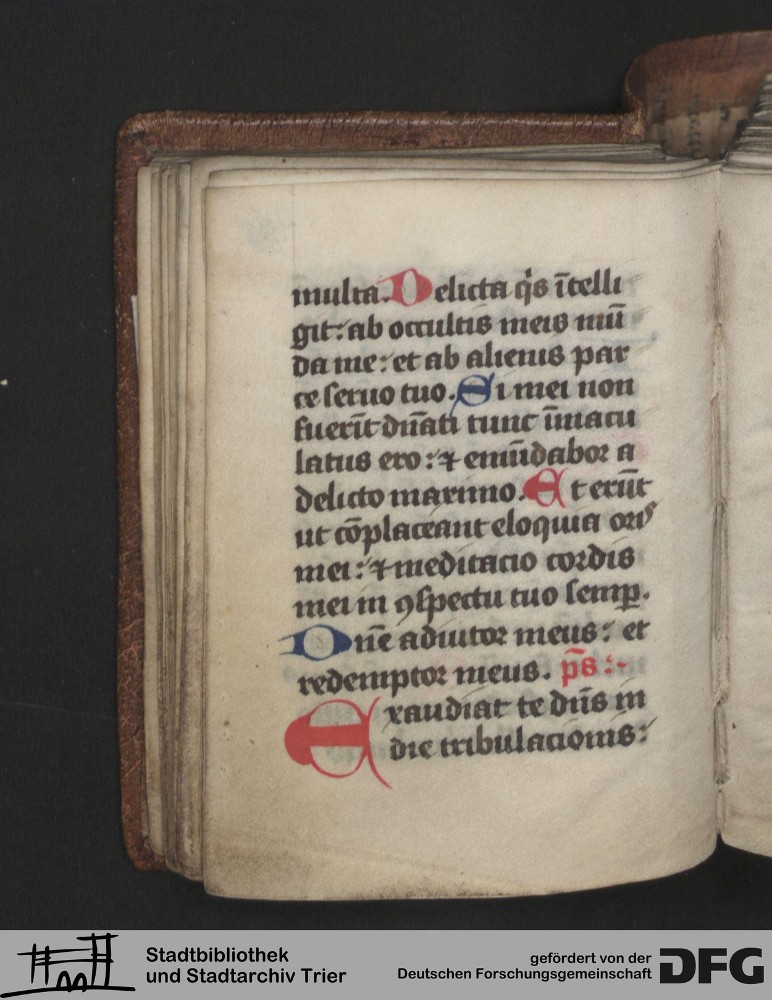 multa. Delicta q̇s ītelli
git: ab occultis meis mū
da me: et ab alienis par
ce seruo tuo. Si mei non
fuerīt dn̄ati tunc īmacu
latus ero: ⁊ emūdabor a
delicto maximo. Et erūt
ut cōplaceant eloquia oris
mei: ⁊ meditacio cordis
mei in ꝯspectu tuo semꝑ.
Dn̄e adiutor meus: et
redemptor meus. p̄s :-
Exaudiat te dn̄s in
die tribulacionis:
Stadtbibliothek
und Stadtarchiv Trier
gefördert von der
Deutschen Forschungsgemeinschaft
DFG